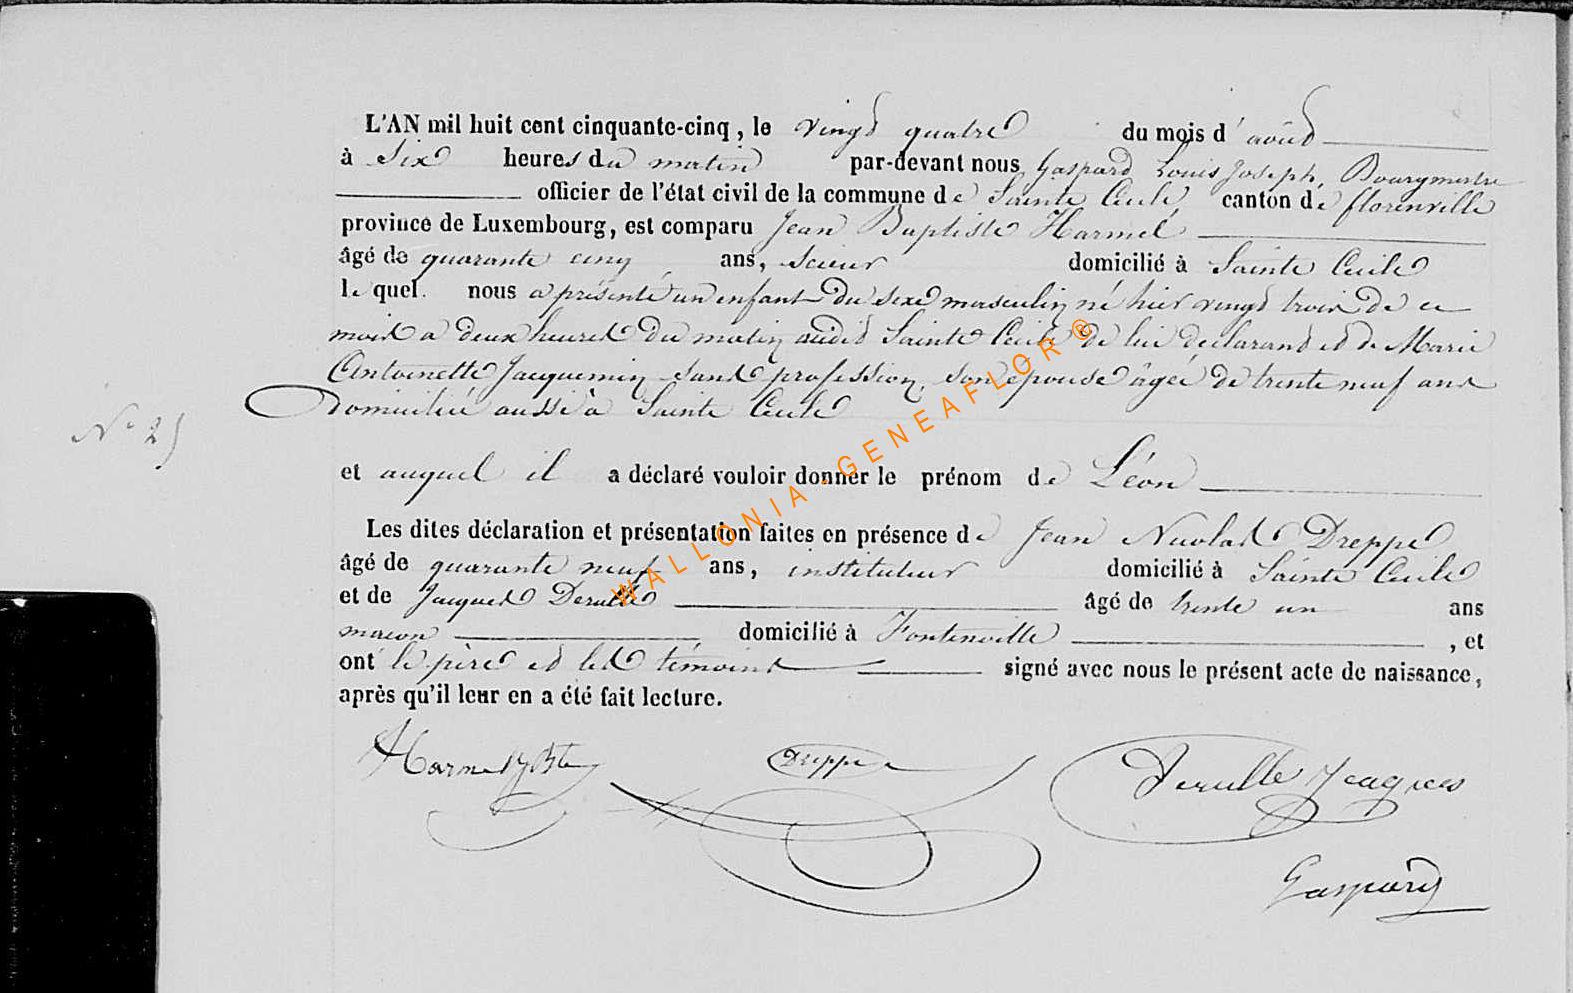 L'AN mil huit cent cinquante-cinq, le vingt quatre du mois d'août
à Six heures du matin par-devant nous Gaspard Louis Joseph, Bourgmestre
officier de l'état civil de la commune de Sainte Cecile, canton de florenville
province de Luxembourg, est comparu Jean Baptiste Harmel
âgé de quarante cinq ans, Scieur domicilié à Sainte Cecile
lequel nous a présenté un enfant du sexe masculin né hier vingt trois de ce
mois a deux heures du matin audit Sainte Cecile de lui déclarant et de Marie
Antoinette Jacquemin sans profession, son épouse âgée de trente neuf ans
domiciliée aussi à Sainte Cecile
N° 25
et auquel il a déclaré vouloir donner le prénom de Léon
Les dites déclaration et présentation faites en présence de Jean Nicolas Dreppe
âgé de quarante neuf ans, instituteur domicilié à Sainte Cecile
et de Jacques Derulle âgé de trente un ans
macon domicilié à Fontenoille, et
ont le père et les témoins signé avec nous le présent acte de naissance,
après qu'il leur en a été fait lecture.
Harmel J Bte Dreppe Derulle Jeaques
Gaspard
WALLONIA-GENEAFLOR®